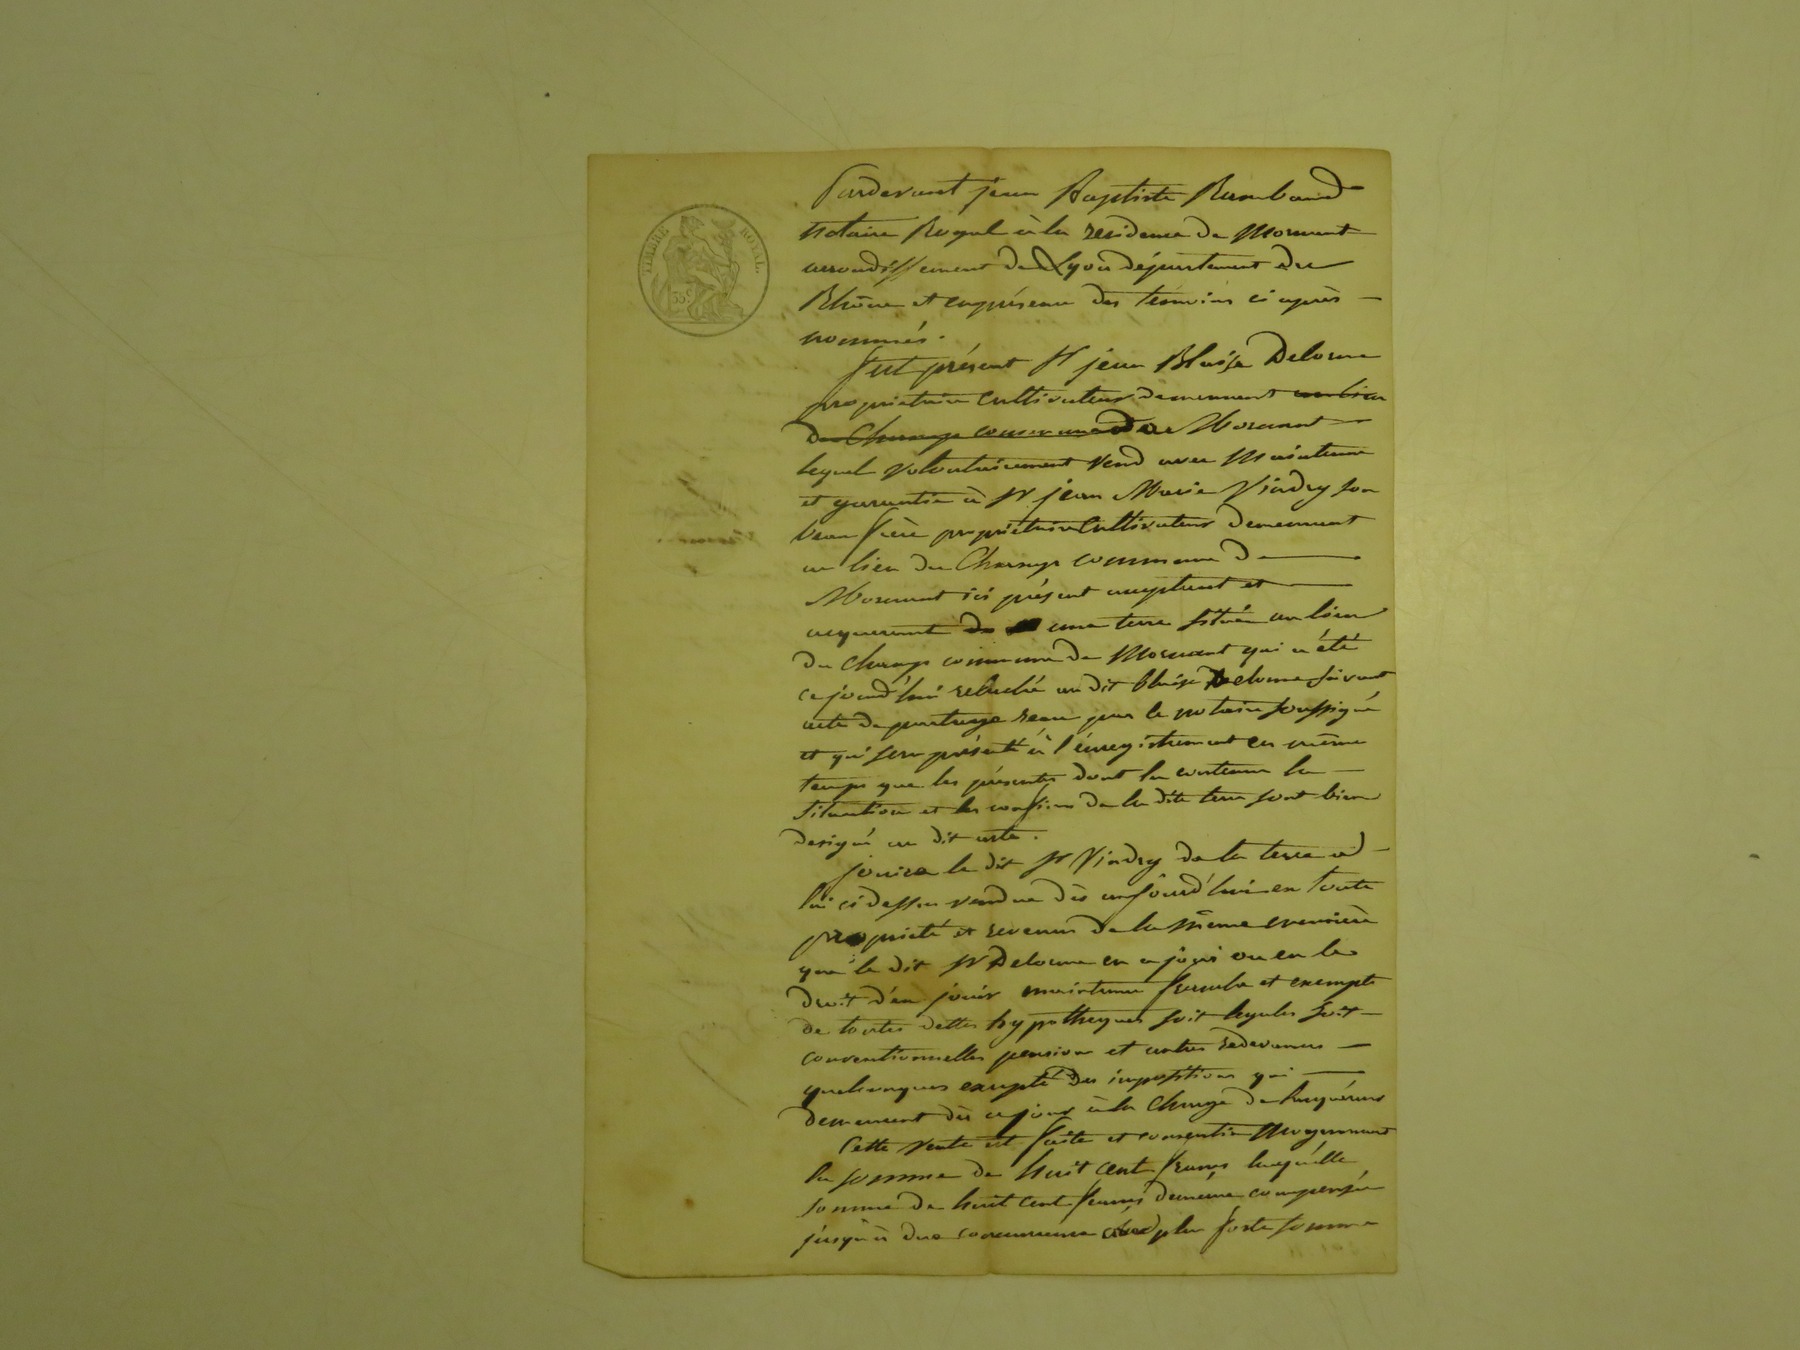 TIMBRE ROYAL
35 c
Pardevant jean Baptiste Rambaud
notaire Royal à la residence de Mornant
arrondissement de Lyon département du
Rhône et en présence des temoins ci après
nommés.
fut présent Sr jean Blaise Delorme
propriétaire Cultivateur demeurant au lieu
du Charnge commune de Mornant
lequel volontairement vend avec Maintenue
et garantie à Sr jean Marie Vindry son
beau frère propriétaire Cultivateur demeurant
au lieu du Charnge commune de
Mornant ici présent acceptant et
acquerant de une terre située au lieu
du Charnge commune de Mornant qui a été
ce jourd'hui relachée au dit Blaise Delorme suivant
acte de partage reçu par le notaire soussigné
et qui sera présenté à l'enregistrement en même
temps que les présentes dont la contenue la
situation et les confins de la dite terre sont bien
designé au dit acte.
jouira le dit Sr Vindry de la terre a
lui ci dessus vendue dès aujourd'hui en toute
propriété et revenus de la même manière
que le dit Sr Delorme en a joui ou eu le
droit d'en jouir maintenue franche et exempte
de toutes dettes hypotheques soit legales soit
conventionnelles pension et autres redevances
quelconques excepté des impositions qui
demeurent dès ce jour à la Charge de l'acquéreur
Cette vente est faite et consentie Moyennant
la somme de huit cent francs laquelle
somme de huit cent francs demeure compensée
jusqu'à due concurrence avec plus forte somme